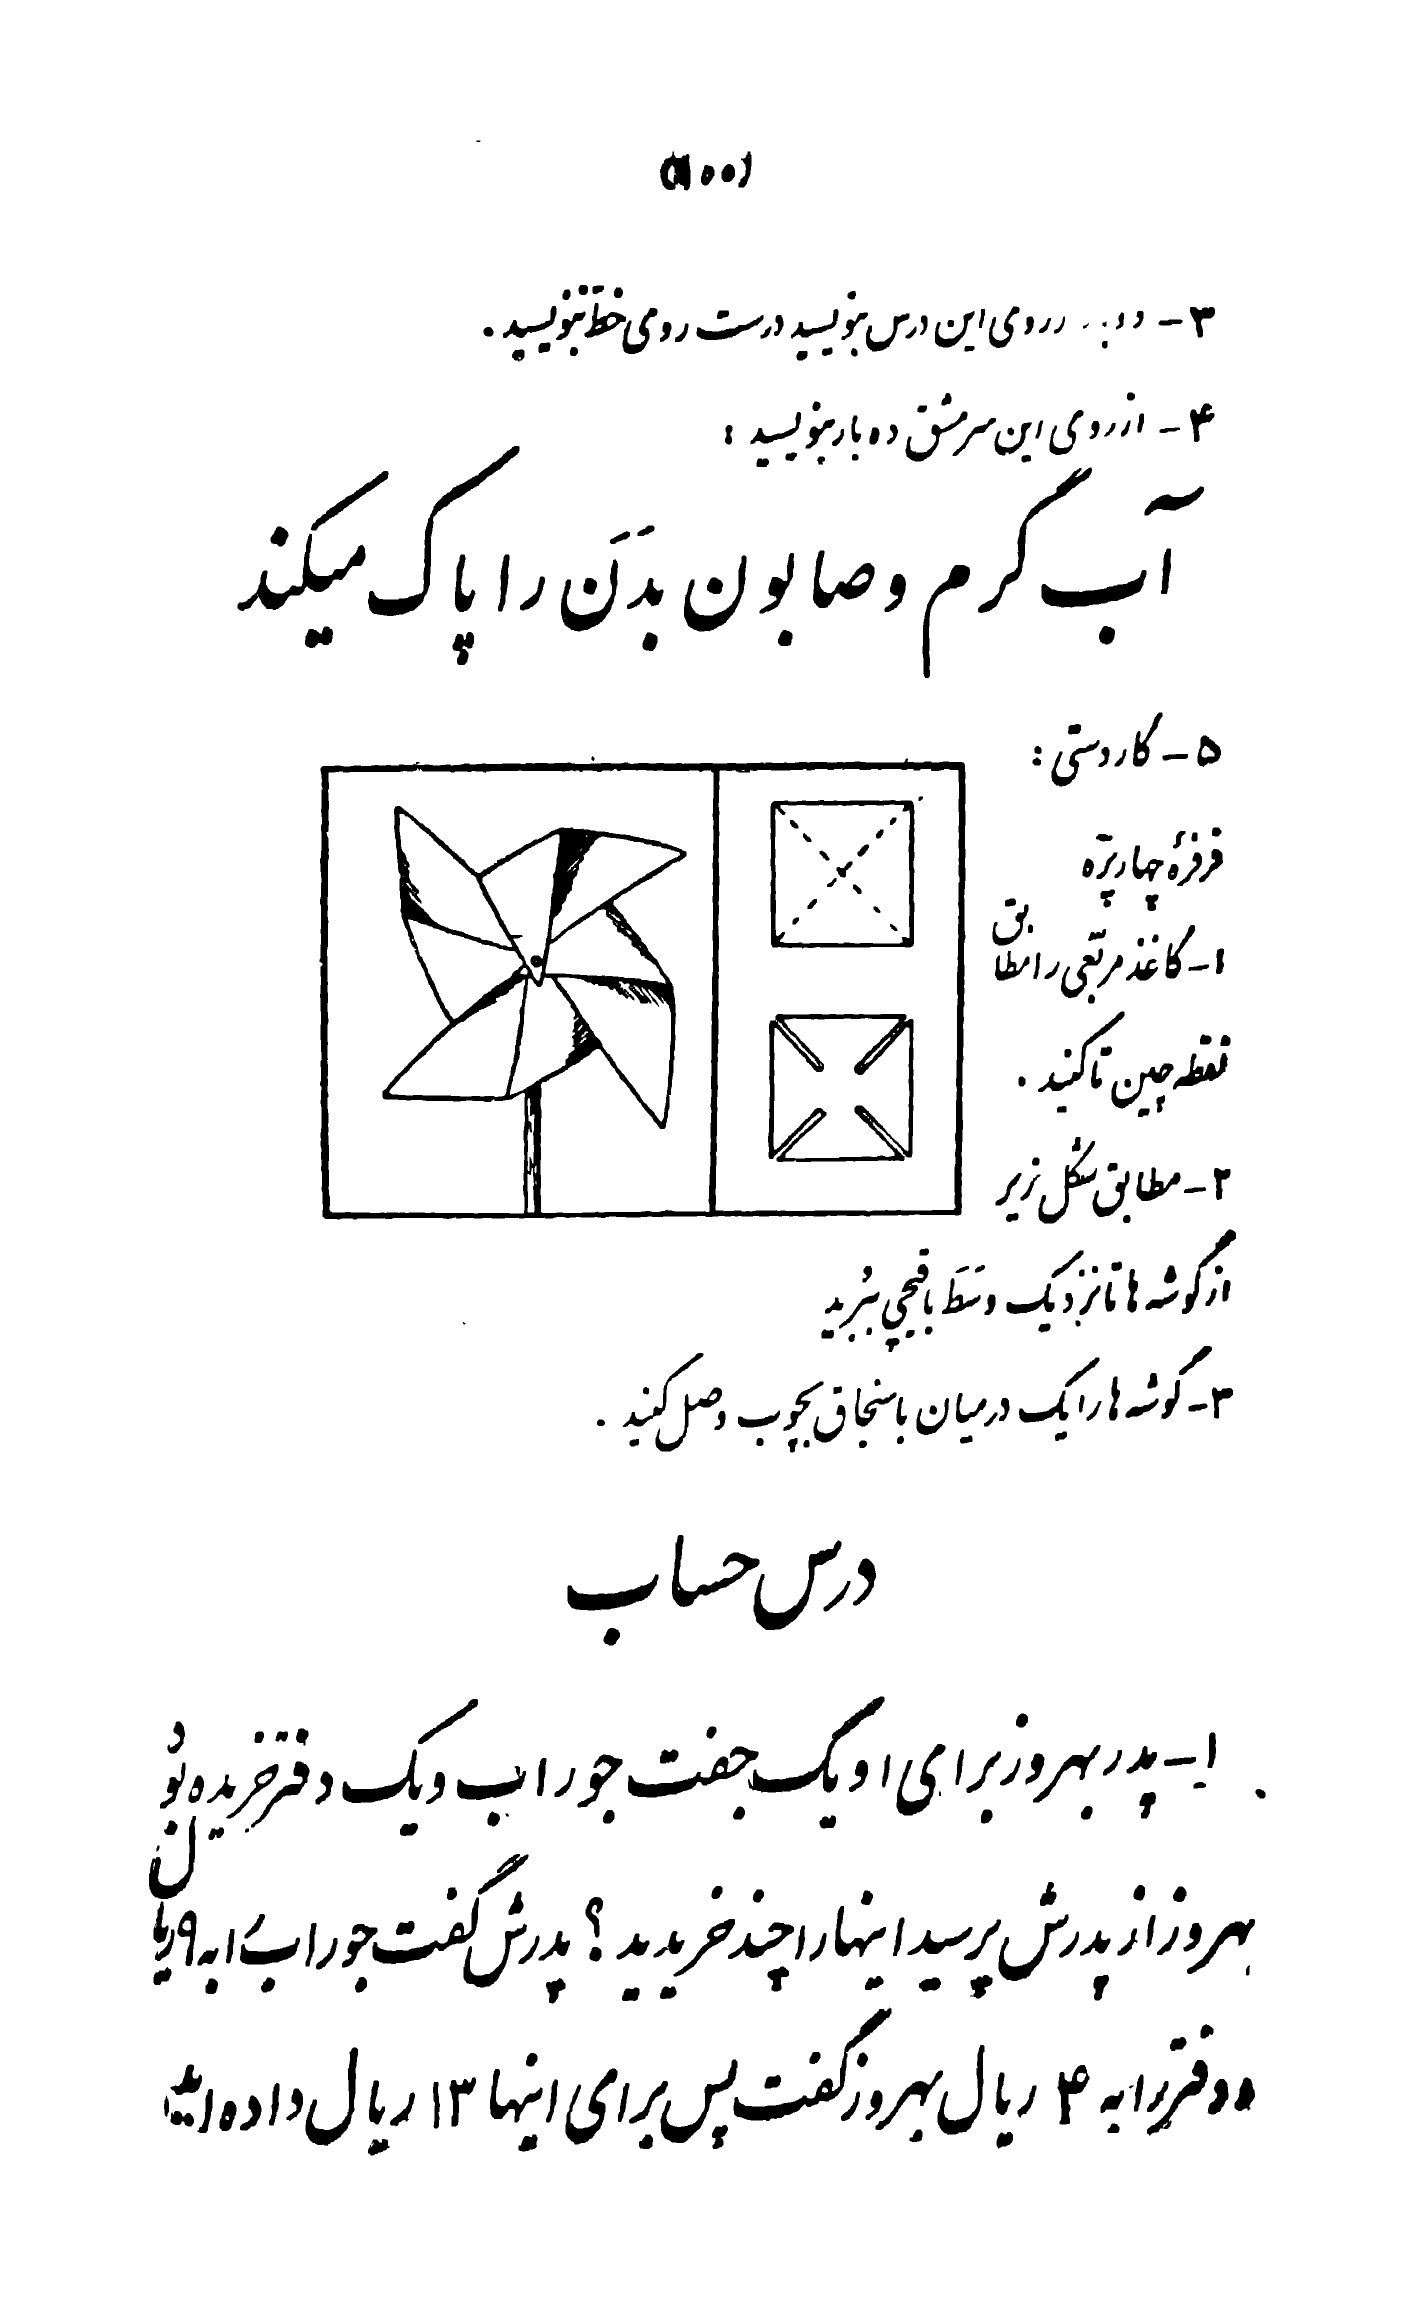 (۱۰۰)
۳- دو بار از روی این درس بنویسید درست روی خطّ بنویسید.
۴- از روی این سرمشق ده بار بنویسید:
آب گرم و صابون بدَنَ را پاک میکند
۵- کاردستی:
فرفرهٔ چهارپرّه
۱- کاغذ مربّعی را مطابق
نقطه چین تا کنید.
۲- مطابق شکل زیر
از گوشه ها تا نزدیک وسَطَ با قیچی ببُرید
۳- گوشه ها را یک درمیان با سنجاق بچوب وصل کنید.
درس حساب
۱- پدر بهروز برای او یک جفت جوراب و یک دفتر خریده بُود
بهروز از پدرش پرسید اینها را چند خریدید؟ پدرش گفت جوراب را به ۹ ریال
و دفتر را به ۴ ریال بهروز گفت پس برای اینها ۱۳ ریال داده اید